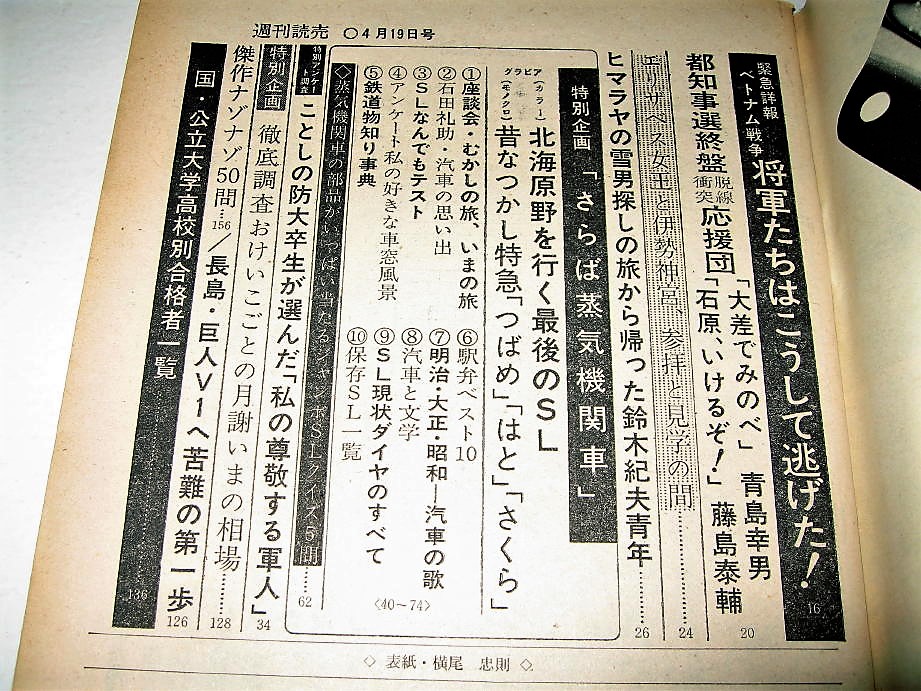 週刊読売 ○4月19日号
緊急詳報
ベトナム戦争
将軍たちはこうして逃げた!
16
都知事選終盤
脱線
衝突
応援団
「大差でみのべ」 青島幸男
「石原、いけるぞ!」 藤島泰輔
20
エリザベス女王と伊勢神宮、参拝と見学の間
24
ヒマラヤの雪男探しの旅から帰った鈴木紀夫青年
26
特別企画 「さらば蒸気機関車」
グラビア
(カラー) 北海原野を行く最後のSL
(モノクロ) 昔なつかし特急「つばめ」「はと」「さくら」
①座談会・むかしの旅、いまの旅
②石田礼助・汽車の思い出
③SLなんでもテスト
④アンケート私の好きな車窓風景
⑤鉄道物知り事典
⑥駅弁ベスト10
⑦明治・大正・昭和—汽車の歌
⑧汽車と文学
⑨SL現状ダイヤのすべて
⑩保存SL一覧
〈40~74〉
◇蒸気機関車の部品がいっぱい当たるジャンボSLクイズ5問
62
特別アンケート調査
ことしの防大卒生が選んだ「私の尊敬する軍人」
34
特別企画
徹底調査おけいこごとの月謝いまの相場
128
傑作ナゾナゾ50問 156/長島・巨人V1へ苦難の第一歩
126
国・公立大学高校別合格者一覧
136
◇ 表紙・横尾 忠則 ◇